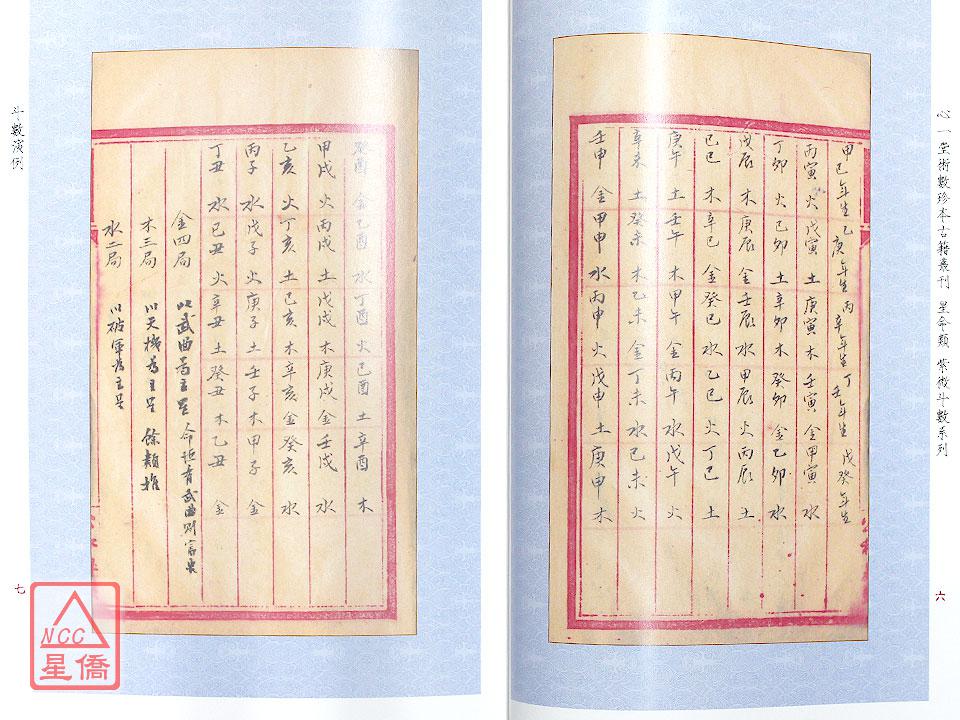 心一堂術數珍本古籍叢刊 星命類 紫微斗數系列
六
甲己年生乙庚年生丙辛年生丁壬年生戊癸年生
丙寅 火戊寅 土庚寅木壬寅金甲寅 水
丁卯 火己卯 土辛卯木癸卯金乙卯 水
戊辰 木庚辰金壬辰水甲辰火丙辰 土
己巳 木辛巳 金癸巳水乙巳火丁巳 土
庚午 土壬午 木甲午金丙午水戊午 火
辛未 土癸未 木乙未金丁未水己未 火
壬申 金甲申 水丙申火戊申土庚申 木
癸酉 金乙酉 水丁酉火己酉土辛酉 木
甲戌 火丙戌 土戊戌木庚戌金壬戌 水
乙亥 火丁亥 土己亥木辛亥金癸亥 水
丙子 水戊子 火庚子土壬子木甲子 金
丁丑 水己丑 火辛丑土癸丑木乙丑 金
金四局 以武曲為主星 命垣有武曲則富貴
木三局 以天機為主星 餘類推
水二局 以破軍為主星
斗數演例
七
NCC
星僑